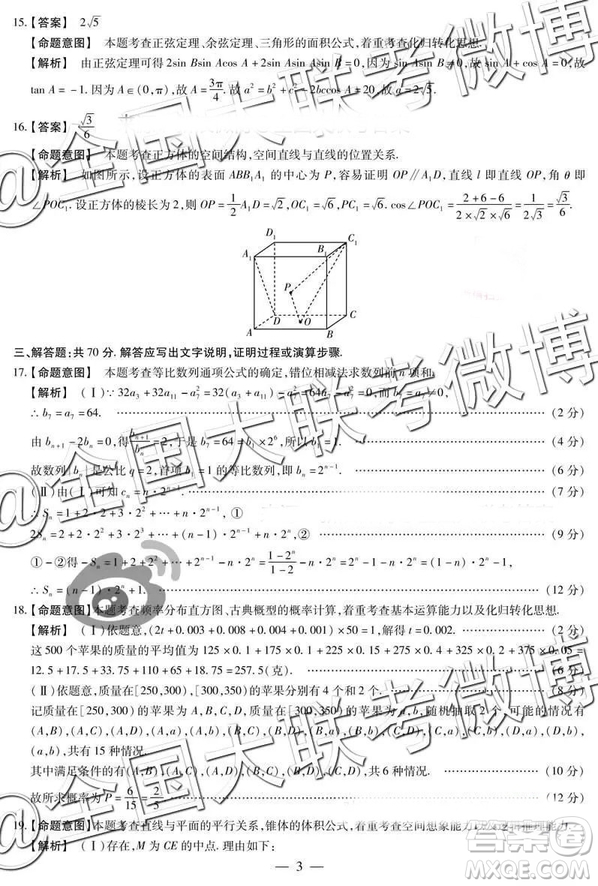 15.【答案】 2√5
【命题意图】 本题考查正弦定理、余弦定理、三角形的面积公式,着重考查化归转化思想.
【解析】 由正弦定理可得 2sin Bsin Acos A+2sin Asin Asin B=0,因为 sin A≠0,故 sin A+cos A=0,故
tan A=-1. 因为 A∈(0,π),故 A=3π/4. 故 a²=b²+c²-2bccos A=20, 故 a=2√5.
16.【答案】 √3/6
【命题意图】 本题考查正方体的空间结构,空间直线与直线的位置关系.
【解析】 如图所示,设正方体的表面 ABB₁A₁ 的中心为 P,容易证明 OP∥A₁D,直线 l 即直线 OP,角 θ 即
∠POC₁. 设正方体的棱长为 2,则 OP=1/2 A₁D=√2,OC₁=√6,PC₁=√6. cos∠POC₁=(2+6-6)/(2×√2×√6)=1/(2√3)=√3/6.
D₁
C₁
A₁
B₁
P
D
O
C
A
B
三、解答题:共 70 分. 解答应写出文字说明,证明过程或演算步骤.
17.【命题意图】 本题考查等比数列通项公式的确定,错位相减法求数列的前 n 项和.
【解析】 (Ⅰ)∵32a₃+32a₁₁-a₇²=32(a₃+a₁₁)-a₇²=64a₇-a₇²=0,而 b₇=a₇≠0,
∴b₇=a₇=64. (2 分)
由 bₙ₊₁-2bₙ=0,得 bₙ₊₁/bₙ=2,于是 b₇=64=b₁×2⁶,所以 b₁=1. (4 分)
故数列{bₙ}是公比 q=2,首项 b₁=1 的等比数列,即 bₙ=2ⁿ⁻¹. (6 分)
(Ⅱ)由(Ⅰ)可知 cₙ=n·2ⁿ⁻¹. (7 分)
∴Sₙ=1+2·2+3·2²+…+n·2ⁿ⁻¹, ①
2Sₙ=2+2·2²+3·2³+…+(n-1)·2ⁿ⁻¹+n·2ⁿ, ② (9 分)
①-②得-Sₙ=1+2+2²+…+2ⁿ⁻¹-n·2ⁿ=(1-2ⁿ)/(1-2)-n·2ⁿ=2ⁿ-1-n·2ⁿ=(1-n)·2ⁿ-1.
∴Sₙ=(n-1)·2ⁿ+1. (12 分)
18.【命题意图】本题考查频率分布直方图、古典概型的概率计算,着重考查基本运算能力以及化归转化思想.
【解析】 (Ⅰ)依题意,(2t+0.003+0.008+0.004+0.001)×50=1,解得 t=0.002. (2 分)
这 500 个苹果的质量的平均值为 125×0.1+175×0.1+225×0.15+275×0.4+325×0.2+375×0.05=
12.5+17.5+33.75+110+65+18.75=257.5(克). (6 分)
(Ⅱ)依题意,质量在[250,300),[300,350)的苹果分别有 4 个和 2 个. (8 分)
记质量在[250,300)的苹果为 A,B,C,D,质量在[300,350)的苹果为 a,b,随机抽取 2 个,可能的情况有
(A,B),(A,C),(A,D),(A,a),(A,b),(B,C),(B,D),(B,a),(B,b),(C,D),(C,a),(C,b),(D,a),(D,b),
(a,b),共有 15 种情况.
其中满足条件的有(A,B),(A,C),(A,D),(B,C),(B,D),(C,D),共 6 种情况. (10 分)
故所求概率为 P=6/15=2/5. (12 分)
19.【命题意图】本题考查直线与平面的平行关系,锥体的体积公式,着重考查空间想象能力以及逻辑推理能力.
【解析】 (Ⅰ)存在,M 为 CE 的中点. 理由如下:
— 3 —
@全国大联考微博
@全国大联考微博
@全国大联考微博
答案圈
MXQE.COM